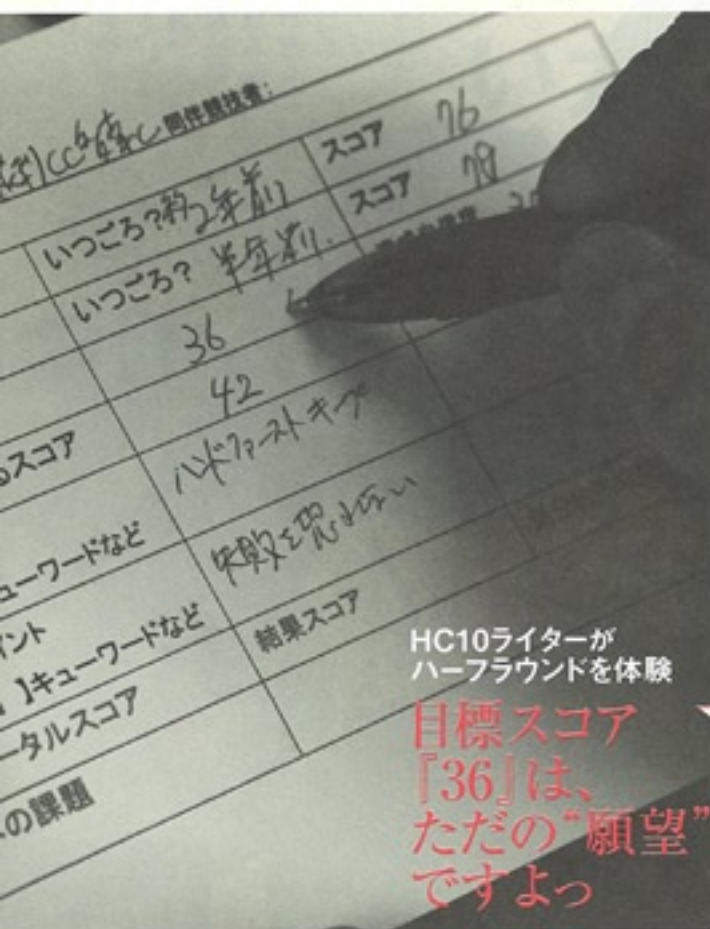 同伴競技者:
いつごろ? 約2年前 スコア 76
いつごろ? 半年前. スコア 79
36
42
るスコア
ハンドファーストキープ
ューワードなど
失敗を恐れない
イント
】キューワードなど 結果スコア
ータルスコア
の課題
HC10ライターが
ハーフラウンドを体験
目標スコア
『36』は、
ただの“願望”
ですよっ